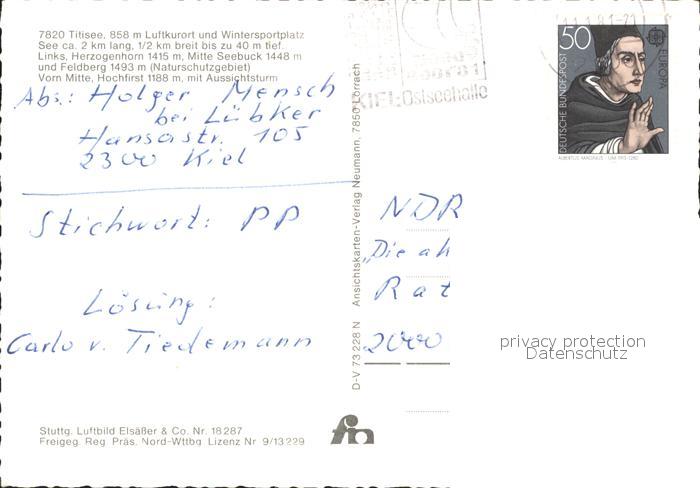 7820 Titisee, 858 m Luftkurort und Wintersportplatz
See ca. 2 km lang, 1/2 km breit bis zu 40 m tief.
Links, Herzogenhorn 1415 m, Mitte Seebuck 1448 m
und Feldberg 1493 m (Naturschutzgebiet)
Vorn Mitte, Hochfirst 1188 m, mit Aussichtsturm
Abs.: Holger Mensch
bei Lübker
Hansastr. 105
2300 Kiel
Stichwort: PP
Lösung:
Carlo v. Tiedemann
Stuttg. Luftbild Elsäßer & Co. Nr. 18287
Freigeg. Reg. Präs. Nord-Wttbg. Lizenz Nr. 9/13229
D-V 73 228 N Ansichtskarten-Verlag Neumann, 7850 Lörrach
fin
KIEL: Ostseehalle
50
DEUTSCHE BUNDESPOST
EUROPA
ALBERTUS MAGNUS · UM 1193-1280
NDR
"Die ak
Rat
2000
privacy protection
Datenschutz